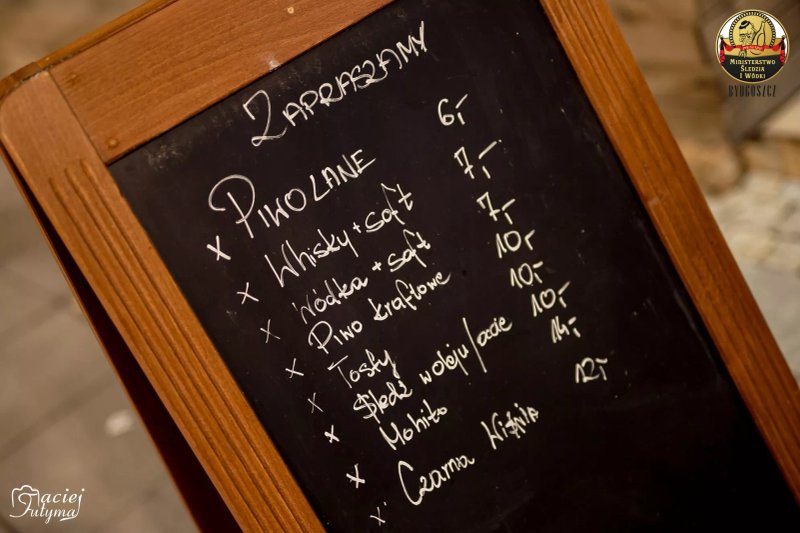 ZAPRASZAMY
x PIWO LANE 6,-
x Whisky + soft 7,-
x Wódka + soft 7,-
x Piwo kraftowe 10,-
x Tosty 10,-
x Śledź w oleju/occie 10,-
x Mohito 14,-
x Czarna Wiśnia 12,-
MINISTERSTWO
ŚLEDZIA
I WÓDKI
BYDGOSZCZ
Maciej
Tutyma